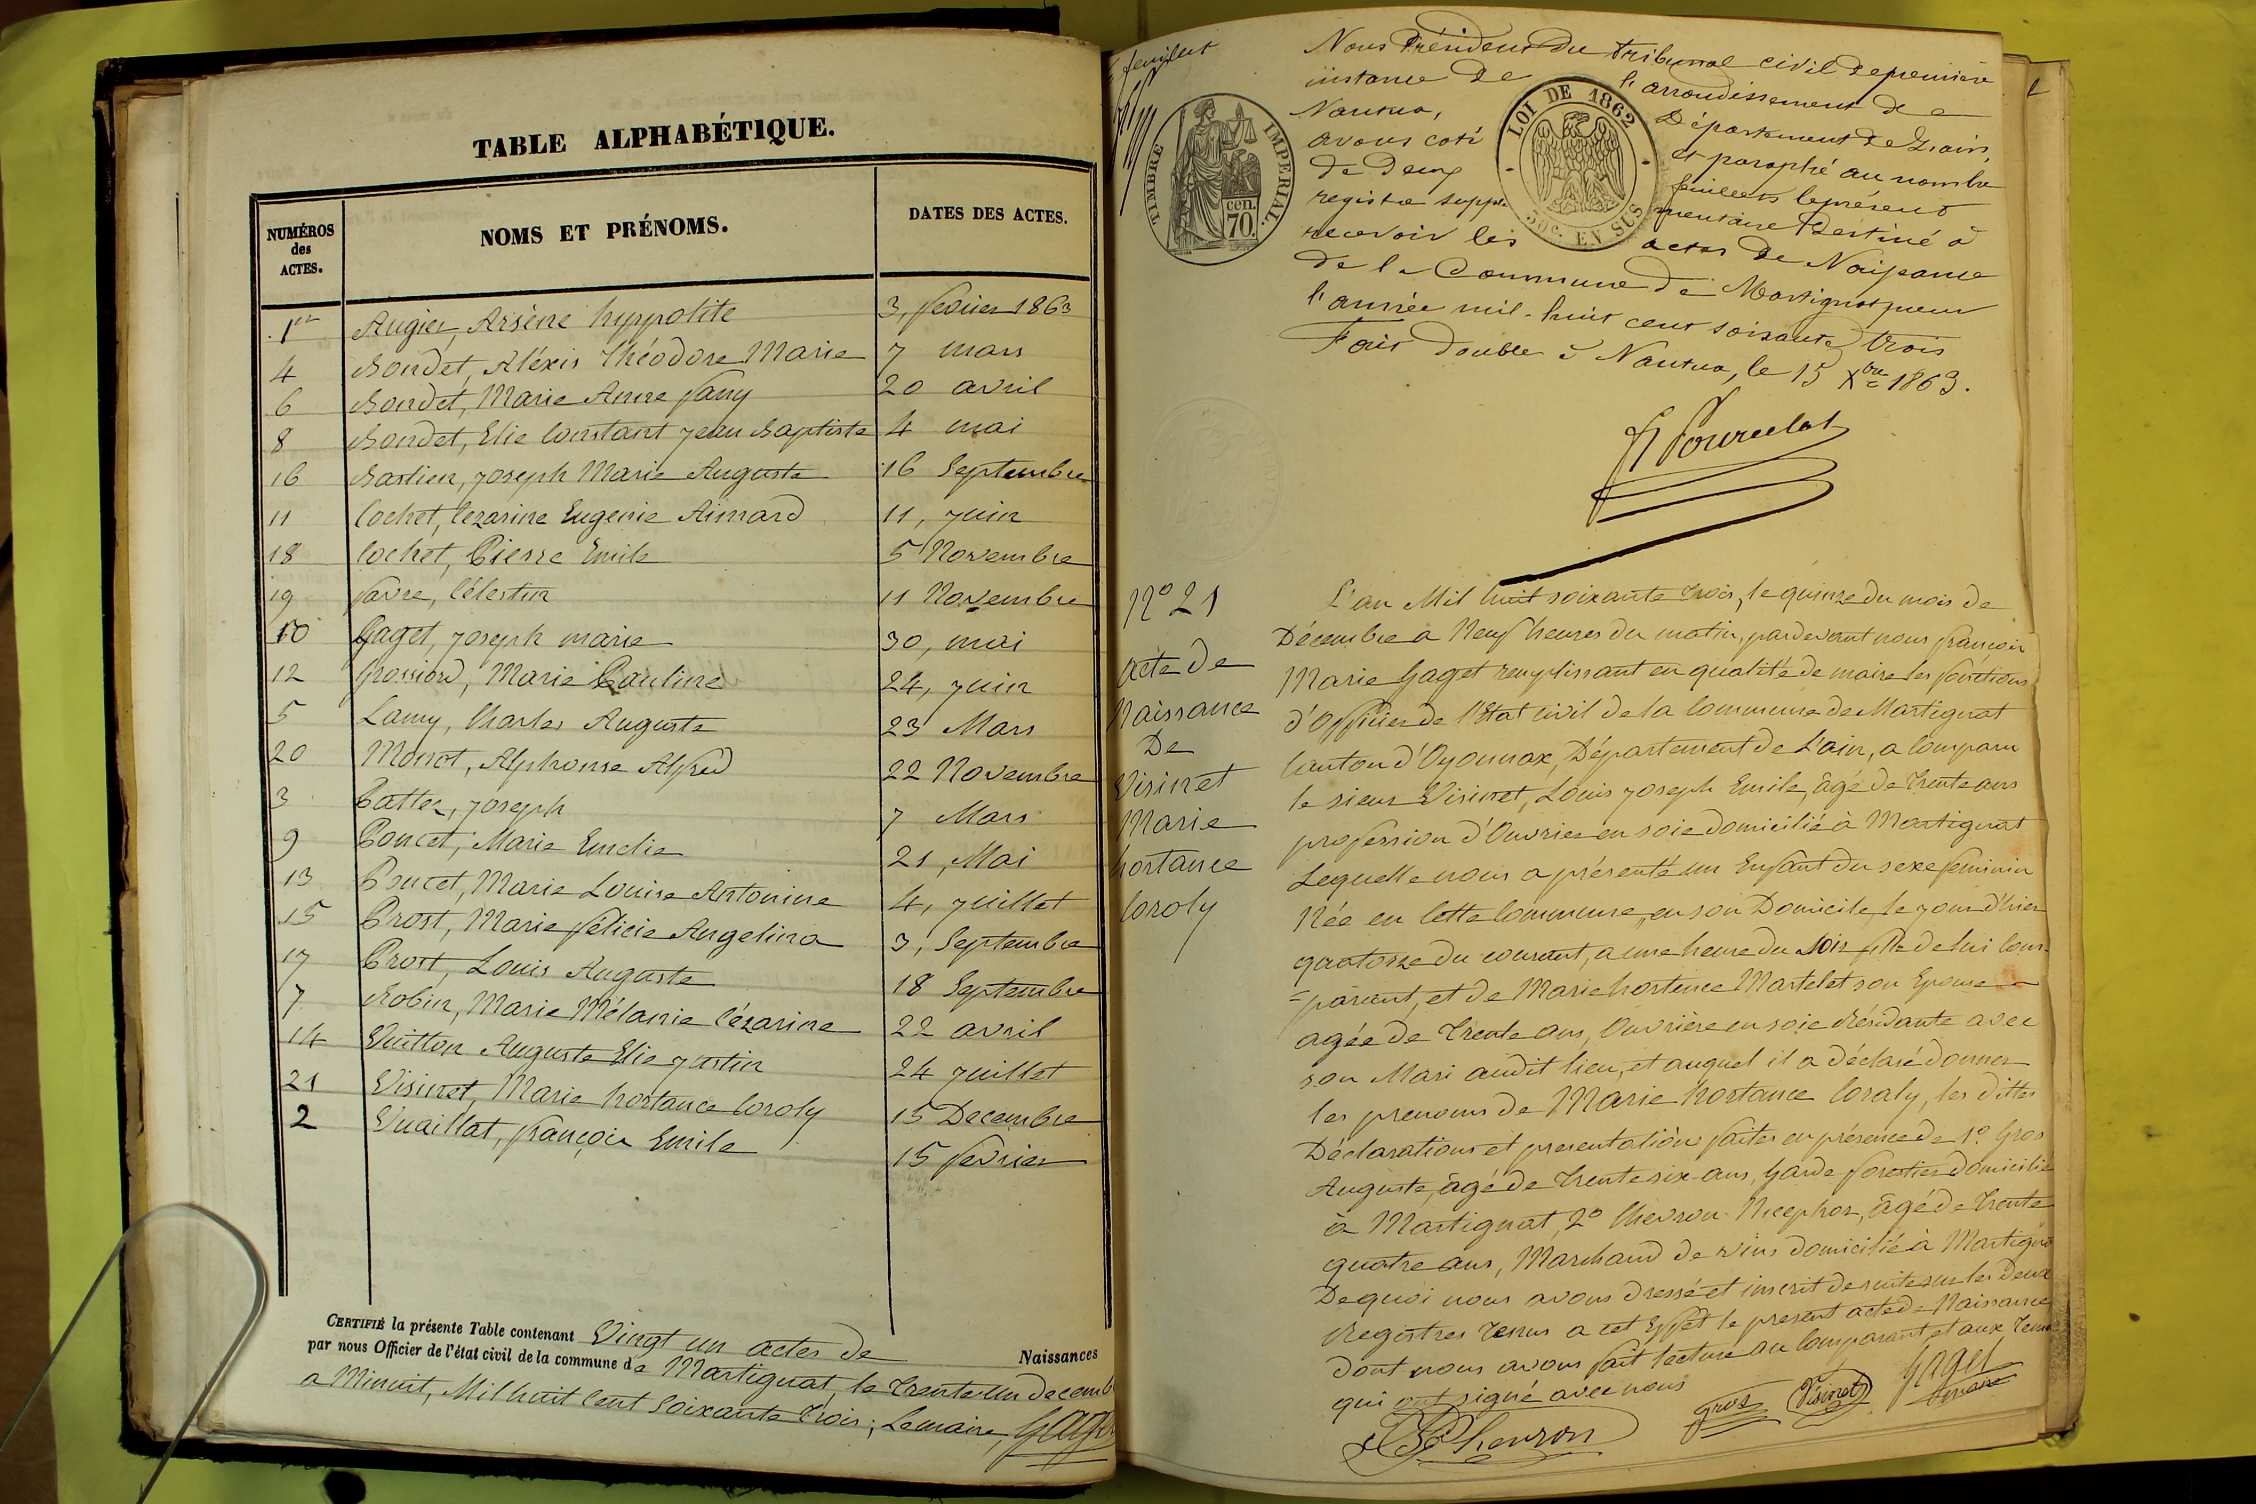 TABLE ALPHABÉTIQUE.
NUMÉROS des ACTES. NOMS ET PRÉNOMS. DATES DES ACTES.
1er Augier, Arsène hyppolite 3, fevrier 1863
4 Bondet, Aléxis Théodore Marie 7 mars
6 Bondet, Marie Anne fany 20 avril
8 Bondet, Elie Constant jean Baptiste 4 mai
16 Bastien, joseph Marie Auguste 16 Septembre
11 Cochet, Cezarine Eugenie Aimard 11, juin
18 Cochet, Pierre Emile 5 Novembre
19 favre, Célestin 11 Novembre
10 Gaget, joseph marie 30, mai
12 Grossiord, Marie Pauline 24, juin
5 Lamy, Charles Auguste 23 Mars
20 Monnet, Alphonse Alfred 22 Novembre
3 Cattez, joseph 7 Mars
9 Poncet, Marie Emelie 21, Mai
13 Poncet, Marie Louise Antonine 4, juillet
15 Prost, Marie félicie Angelina 3, Septembre
17 Prost, Louis Auguste 18 Septembre
7 Robin, Marie Mélanie Cézarine 22 avril
14 Vuitton Auguste Elie justin 24 juillet
21 Visinet, Marie hortance Coroly 15 Decembre
2 Vuaillat, françois Emile 15 fevrier
CERTIFIÉ la présente Table contenant Vingt un actes de Naissances
par nous Officier de l'état civil de la commune de Martignat, le trente un decemb
a Minuit, Mil huit Cent Soixante trois; Le maire, Gaget
feuillet
TIMBRE IMPERIAL.
cen. 70.
LOI DE 1862
50c. EN SUS
Nous Président Du tribunal civil de première
instance de l'arrondissement de
Nantua, Département de l'ain,
avons coté et paraphé au nombre
de Deux feuillets le présent
registre supplémentaire destiné à
recevoir les actes de Naissance
de la Commune de Martignat pour
l'année mil-huit cent soixante trois
Fait double à Nantua, le 15 Xbre 1863.
N° 21
acte de
Naissance
De
Visinet
Marie
hortance
Coroly
L'an Mil huit soixante trois, le quinze du mois de
Décembre a Neuf heures du matin, pardevant nous françois
Marie Gaget remplissant en qualité de maire les fonctions
d'Officier de l'Etat civil de la Commune de Martignat
Canton d'Oyonnax, Département de L'ain, a Comparu
le sieur Visinet, Louis joseph Emile, âgé de trente ans
profession d'Ouvrier en soie domicilié à Martignat
Lequelle nous a présenté un Enfant du sexe feminin
Née en Cette Commune, en son Domicile, le jour d'hier
quatorze du courant, a une heure du soir fille de lui Com-
=parant, et de Marie hortence Martelet son Epouse
agée de trente ans, Ouvrière en soie Résidante avec
son Mari audit lieu, et auquel il a déclaré donner
les prenoms de Marie hortance Coraly, les dittes
Déclarations et presentation faites en présence de 1° Gros
Auguste, âgé de trente six ans, Garde forestier domicilié
à Martignat, 2° Chevron Nicephor, âgé de trente
quatre ans, Marchand de vins domicilié à Martigna
De quoi nous avons dressé et inscrit de suite sur les deux
Registres tenus a cet Effet le present acte de Naissance
dont nous avons fait lecture au Comparant et aux temo
qui ont signé avec nous
Chevron Gros Visinet Gaget
maire